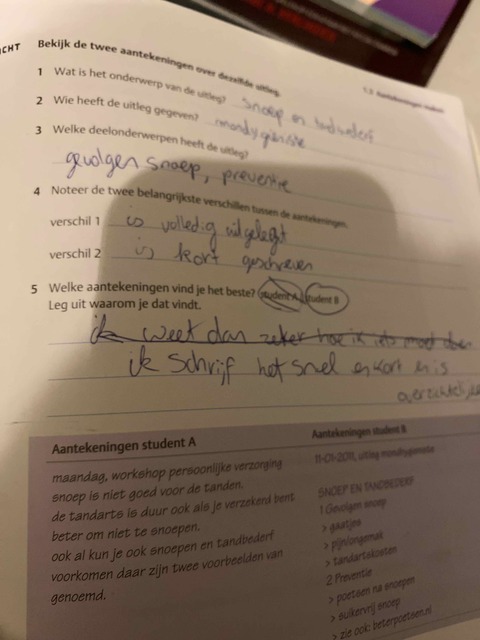 ICHT
Bekijk de twee aantekeningen over dezelfde uitleg.
1.3 Aantekeningen maken
1 Wat is het onderwerp van de uitleg? Snoep en tandbederf
2 Wie heeft de uitleg gegeven? mondygieniste
3 Welke deelonderwerpen heeft de uitleg?
gevolgen snoep, preventie
4 Noteer de twee belangrijkste verschillen tussen de aantekeningen.
verschil 1 is volledig uitgelegt
verschil 2 is kort geschreven
5 Welke aantekeningen vind je het beste? student A student B
Leg uit waarom je dat vindt.
ik weet dan zeker hoe ik iets moet doen
ik schrijf het snel en kort en is
overzichtelijker
Aantekeningen student A
maandag, workshop persoonlijke verzorging
snoep is niet goed voor de tanden.
de tandarts is duur ook als je verzekerd bent
beter om niet te snoepen.
ook al kun je ook snoepen en tandbederf
voorkomen daar zijn twee voorbeelden van
genoemd.
Aantekeningen student B
11-01-2011, uitleg mondhygieniste
SNOEP EN TANDBEDERF
1 Gevolgen snoep
> gaatjes
> pijn/ongemak
> tandartskosten
2 Preventie
> poetsen na snoepen
> suikervrij snoep
> zie ook: beterpoetsen.nl